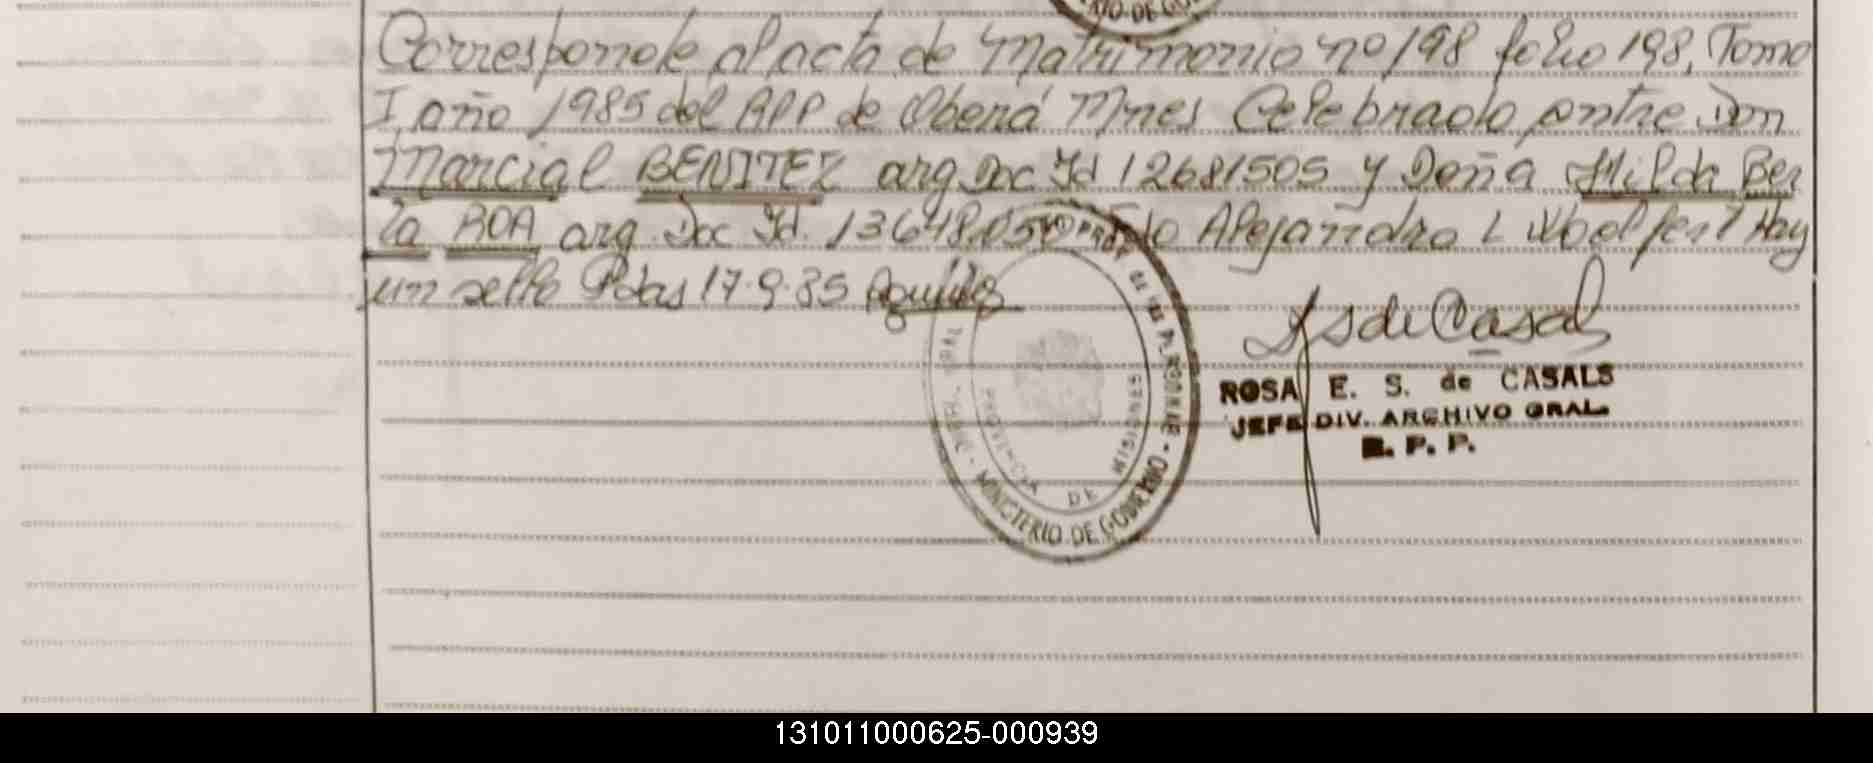 RIO DE GO
Corresponde al acta de Matrimonio nº 198 folio 198, Tomo
I año 1985 del RPP de Oberá Mnes Celebrado entre Don
Marcial BENITEZ arg Doc Id 12681505 y Doña Hilda Ber
ta ROA arg. Doc Id. 13648.05 Fdo Alejandro L Hay
un sello Pdas 17.9.85
PROV. DE LAS PERSONAS - MINISTERIO DE GOBIERNO - GRAL.
PROVINCIA DE MISIONES
ROSA E. S. de CASALS
JEFE DIV. ARCHIVO GRAL.
R. P. P.
131011000625-000939